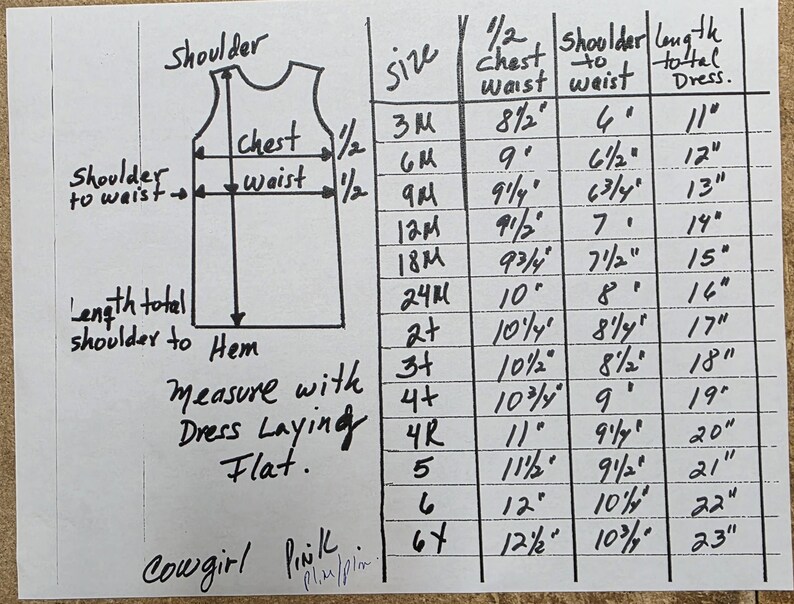 Shoulder
Chest 1/2
Waist 1/2
Shoulder
to waist →
Length total
shoulder to Hem
Measure with
Dress Laying
Flat.
Cowgirl Pink
Size 1/2 Chest Waist Shoulder to waist Length total Dress.
3M 8 1/2" 6" 11"
6M 9" 6 1/2" 12"
9M 9 1/4" 6 3/4" 13"
12M 9 1/2" 7" 14"
18M 9 3/4" 7 1/2" 15"
24M 10" 8" 16"
2t 10 1/4" 8 1/4" 17"
3t 10 1/2" 8 1/2" 18"
4t 10 3/4" 9" 19"
4R 11" 9 1/4" 20"
5 11 1/2" 9 1/2" 21"
6 12" 10 1/4" 22"
6X 12 1/2" 10 3/4" 23"